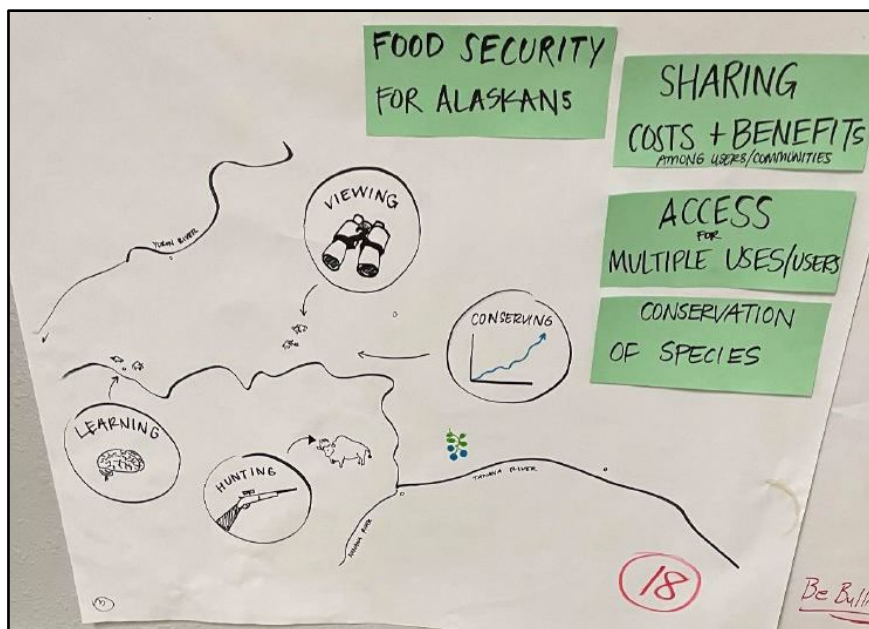 FOOD SECURITY
FOR ALASKANS
SHARING
COSTS + BENEFITS
AMONG USERS/COMMUNITIES
ACCESS
FOR
MULTIPLE USES/USERS
CONSERVATION
OF SPECIES
VIEWING
YUKON RIVER
CONSERVING
LEARNING
HUNTING
TANANA RIVER
NENANA RIVER
18
Be